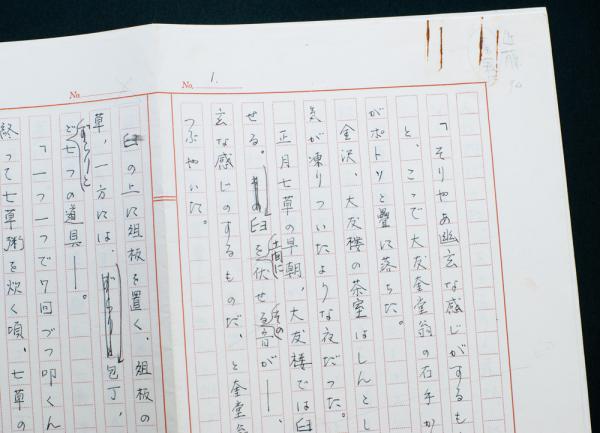 No. 1.
「そりやあ幽玄な感じがするも
と、こっで大友奎堂翁の右手か
がポトッと畳に落ちた。
金沢、大友楼の茶室はしんとし
気が凍りついたような夜だった。
正月七草の早朝、大友楼では臼
せる。臼を土間に伏せるその音が――、
玄な感じのするものだ、と奎堂翁
つぶやいた。
No.
臼の上に俎板を置く、俎板の
草、一方には、包丁、
ずらりと
ど七つの道具――。
「一つ一つで7回づつ叩くん
終って七草粥を炊く頃、七草の